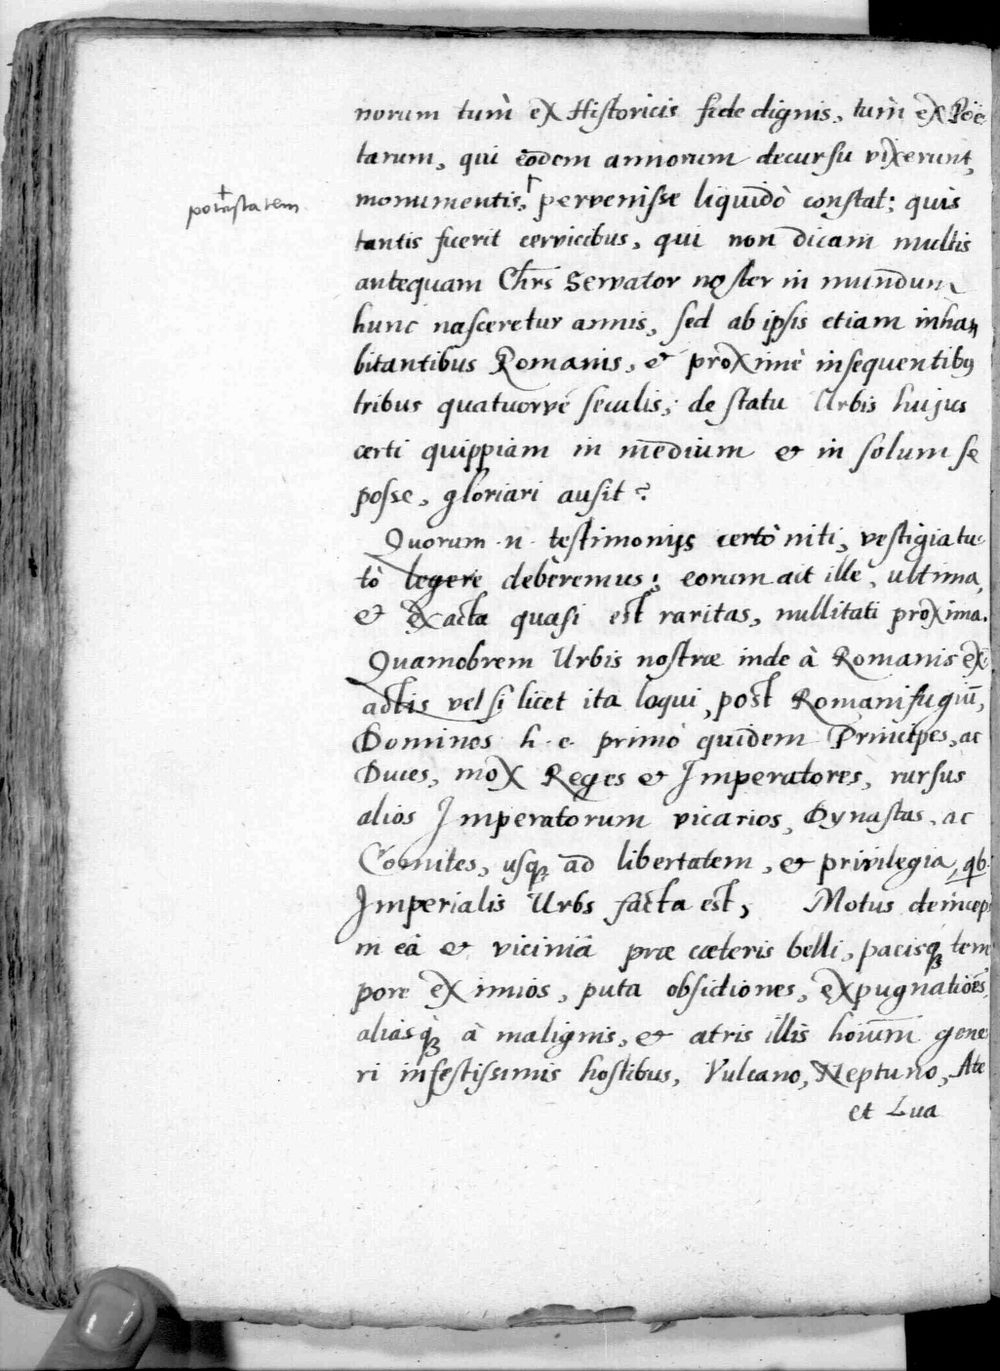 norum tum̀ ex Historicis fide dignis, tum̀ ex Poë-
tarum, qui eodem annorum decursu vixerunt,
† potestatem
monumentis,† pervenisse liquidò constat; quis
tantis fuerit cervicibus, qui non dicam multis
antequam Chrs Servator noster in mundum
hunc nasceretur annis, sed ab ipsis etiam inha-
bitantibus Romanis, et proximè insequentibus
tribus quatuorvé seculis; de statu Urbis hujus
certi quippiam in medium et in solum se
posse, gloriari ausit?
Quorum .n. testimonijs certò niti, vestigia tu-
tò legere deberemus; eorum ait ille, ultima,
et exacta quasi est raritas, nullitati proxima.
Quamobrem Urbis nostræ inde à Romanis ex-
actis vel si licet ita loqui, post Romanifugiū,
Dominos h. e. primò quidem Principes, ac
Duces, mox Reges et Imperatores, rursus
alios Imperatorum vicarios, Dynastas, ac
Comites, usq; ad libertatem, et privilegia, qb:
Imperialis Urbs facta est, Motus deincep
in eâ et viciniâ præ cæteris belli, pacisq; tem
pore eximios, puta obsidiones, expugnatiões,
aliasq; à malignis, et atris illis hoium̄ gene-
ri infestissimis hostibus, Vulcano, Neptuno, Ate
et Lua